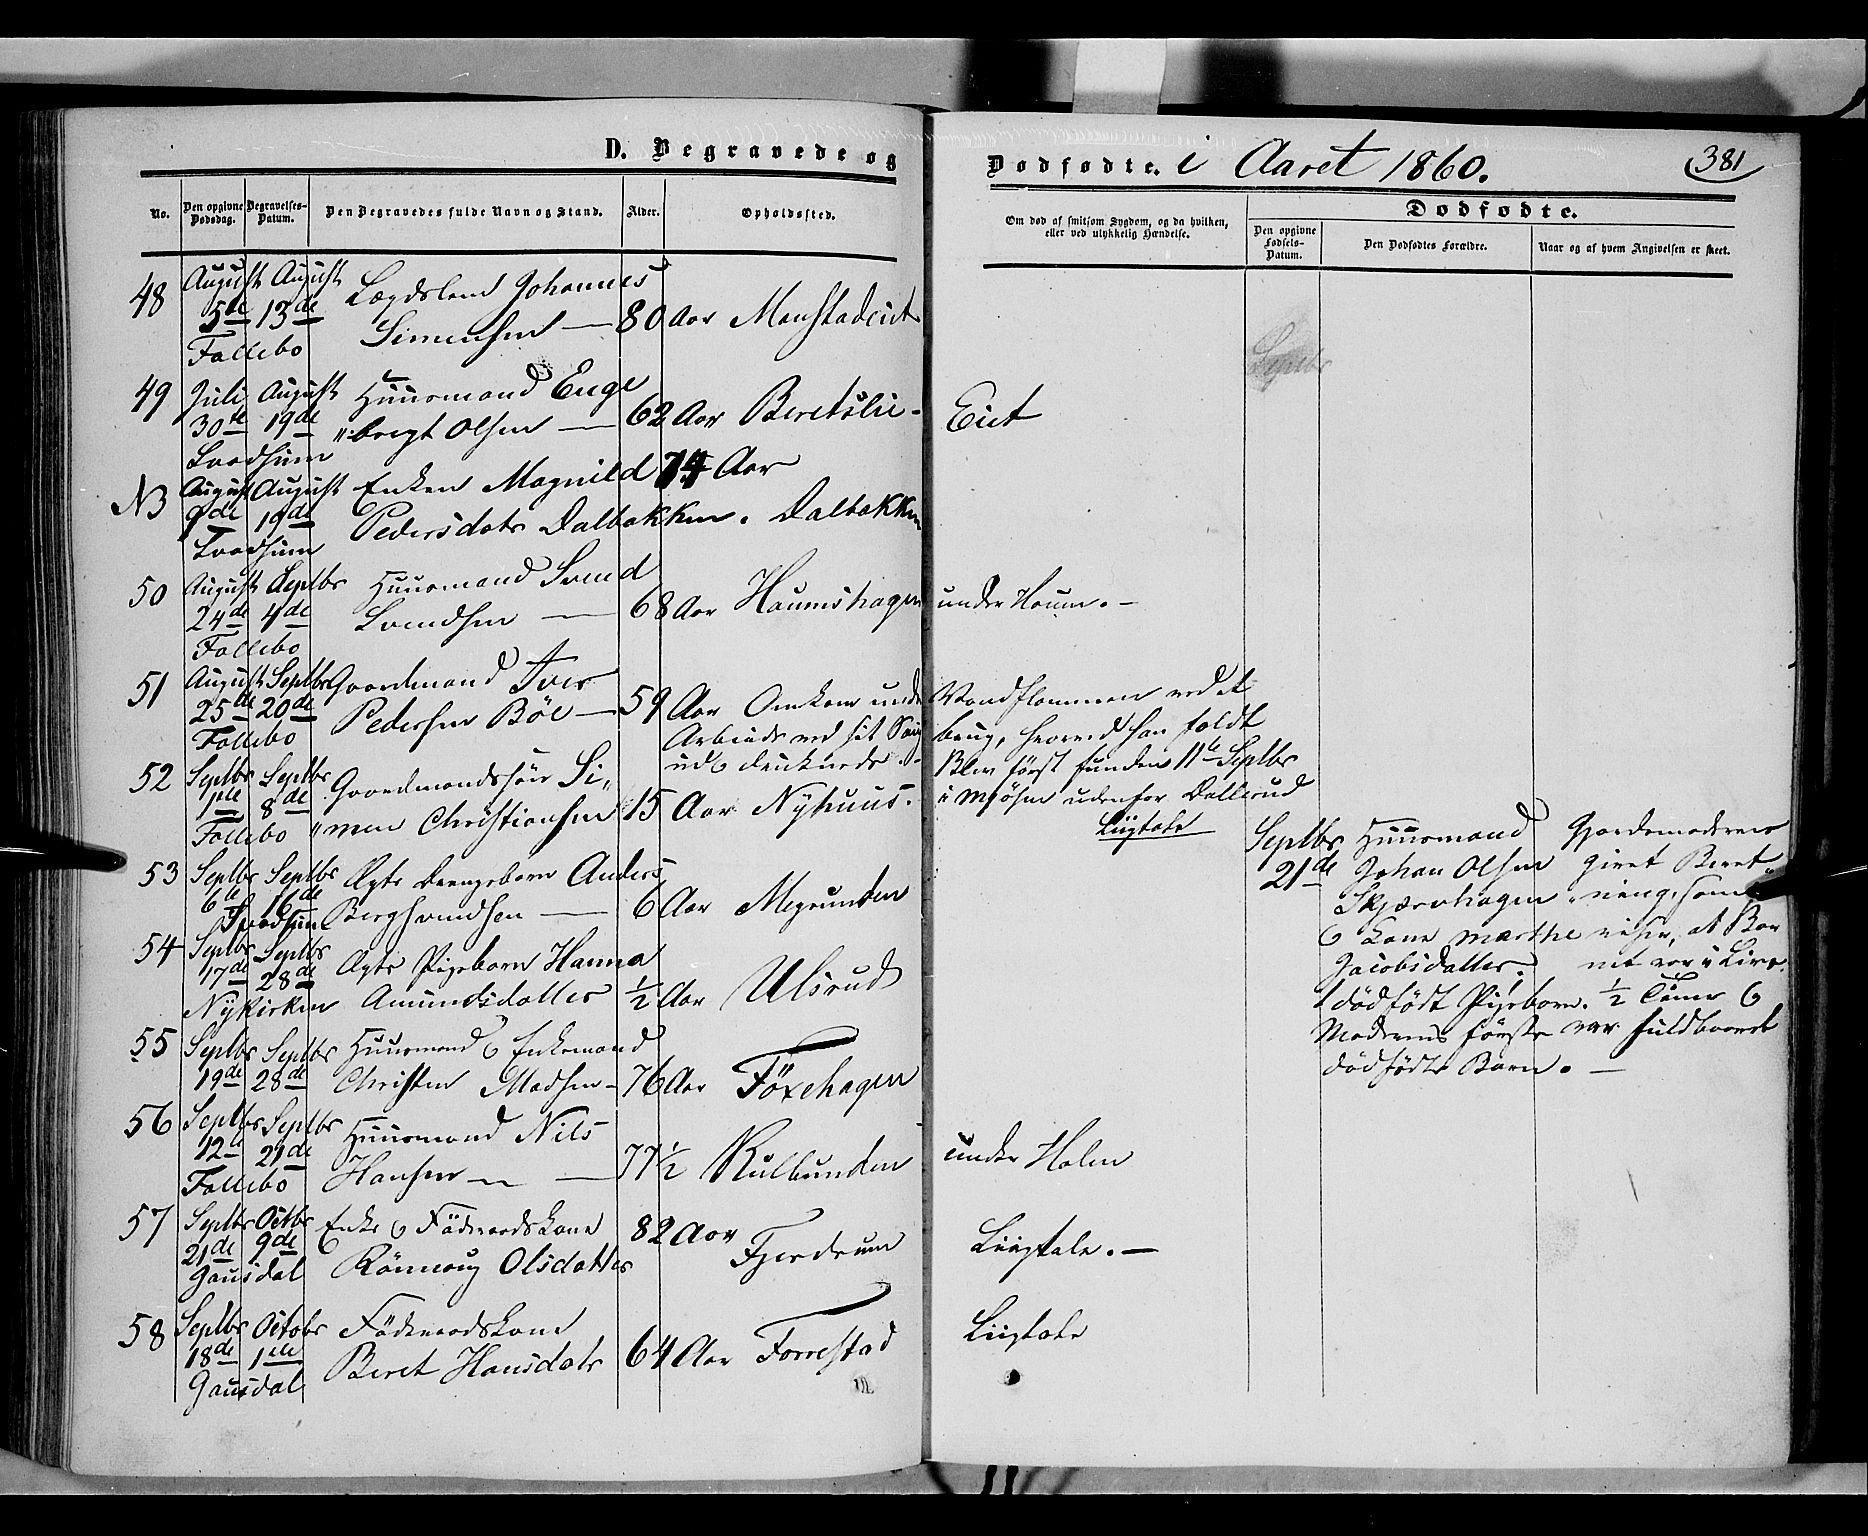 D. Begravede og
Dødfødte. i Aaret 1860.
381
No.
Den opgivne Dødsdag.
Begravelses-Datum.
Den Begravedes fulde Navn og Stand.
Alder.
Opholdssted.
Om død af smitsom Sygdom, og da hvilken,
eller ved ulykkelig Hændelse.
Dødfødte.
Den opgivne Fødsels-Datum.
Den Dødfødtes Forældre.
Naar og af hvem Angivelsen er skeet.
48 August August Lægdslem Johannes
5te 13de Simensen — 80 Aar
Follebo
Septbr
49 Juli August Huusmand Enge
30te 19de "bregt Olsen — 62 Aar Beretslie- Eiet
Svadsum
NB August August Enken Magnild 74 Aar
9de 19de Pedersdatr Dalbakken. Dalbakken
Svadsum
50 August Septbr Huusmand Svend
24de 4de Svendsen — 68 Aar Haumshagen under Houm. —
Follebo
51 August Septbr Gaardmand Iver
25de 20de Pedersen Böe — 59 Aar Omkom under Vandflommen ved et
Follebo Arbeide ved sit Saug brug, hvorved han faldt
ud & druknede. - Blev först funden 11te Septbr
i Mjösen udenfor Dallerud
Liigtale
52 Septbr Septbr Gaardmandssön Si"
1ste 8de "men Christiansen 15 Aar Nyhuus.
Follebo
53 Septbr Septbr Ægte Drengebarn Anders
6te 16de Bergsvendsen — 6 Aar Megrunden
Svadsum
54 Septbr Septbr Ægte Pigebarn Hanna
17de 28de Amundsdatter ½ Aar Ulsrud
Nykirken
55 Septbr Septbr Huusmand & Enkemand
19de 28de Christen Madsen - 76 Aar Föxehagen
56 Septbr Septbr Huusmand Nils
12te 21de Hansen — 77½ Kulbunden under Holen
Follebo
57 Septbr Octbr Enke & Föderaadskone 82 Aar
21de 9de Rönnoug Olsdatter Fjerdrum Liigtale. —
Gausdal
58 Septbr Octobr Föderaadskone
18de 1ste Beret Hansdatr 64 Aar Forrestad Liigtale
Gausdal
Septbr Huusmand
21de Johan Olsen
Skjærvhagen
& Kone Marthe
Jacobsdatter.
1 dödfödt Pigebarn.
Moderens förste
dödfödte Barn. —
Gjordemoderen
givet Beret"
"ning, som
viser, at Bar
net var i Live
½ Time &
var fuldbaaret